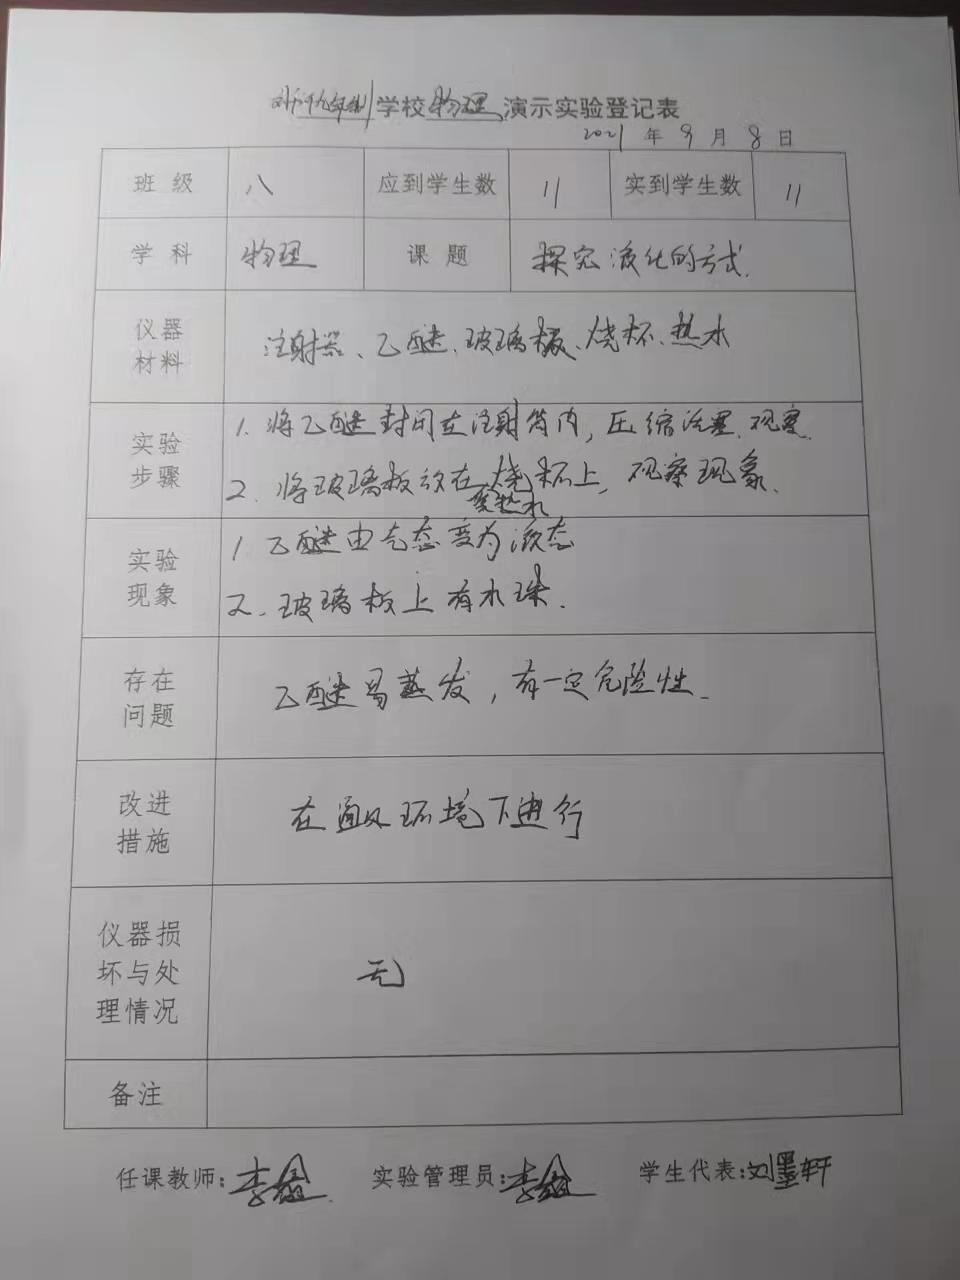 九年制学校物理演示实验登记表
2021年9月8日
班级 八 应到学生数 11 实到学生数 11
学科 物理 课题 探究液化的方式.
仪器材料 注射器、乙醚、玻璃板、烧杯、热水
实验步骤 1. 将乙醚封闭在注射筒内，压缩活塞.观察.
2. 将玻璃板放在烧杯上，观察现象.
热水
实验现象 1. 乙醚由气态变为液态
2. 玻璃板上有水珠.
存在问题 乙醚易蒸发，有一定危险性.
改进措施 在通风环境下进行
仪器损坏与处理情况 无
备注
任课教师: 李 实验管理员: 李 学生代表:刘墨轩